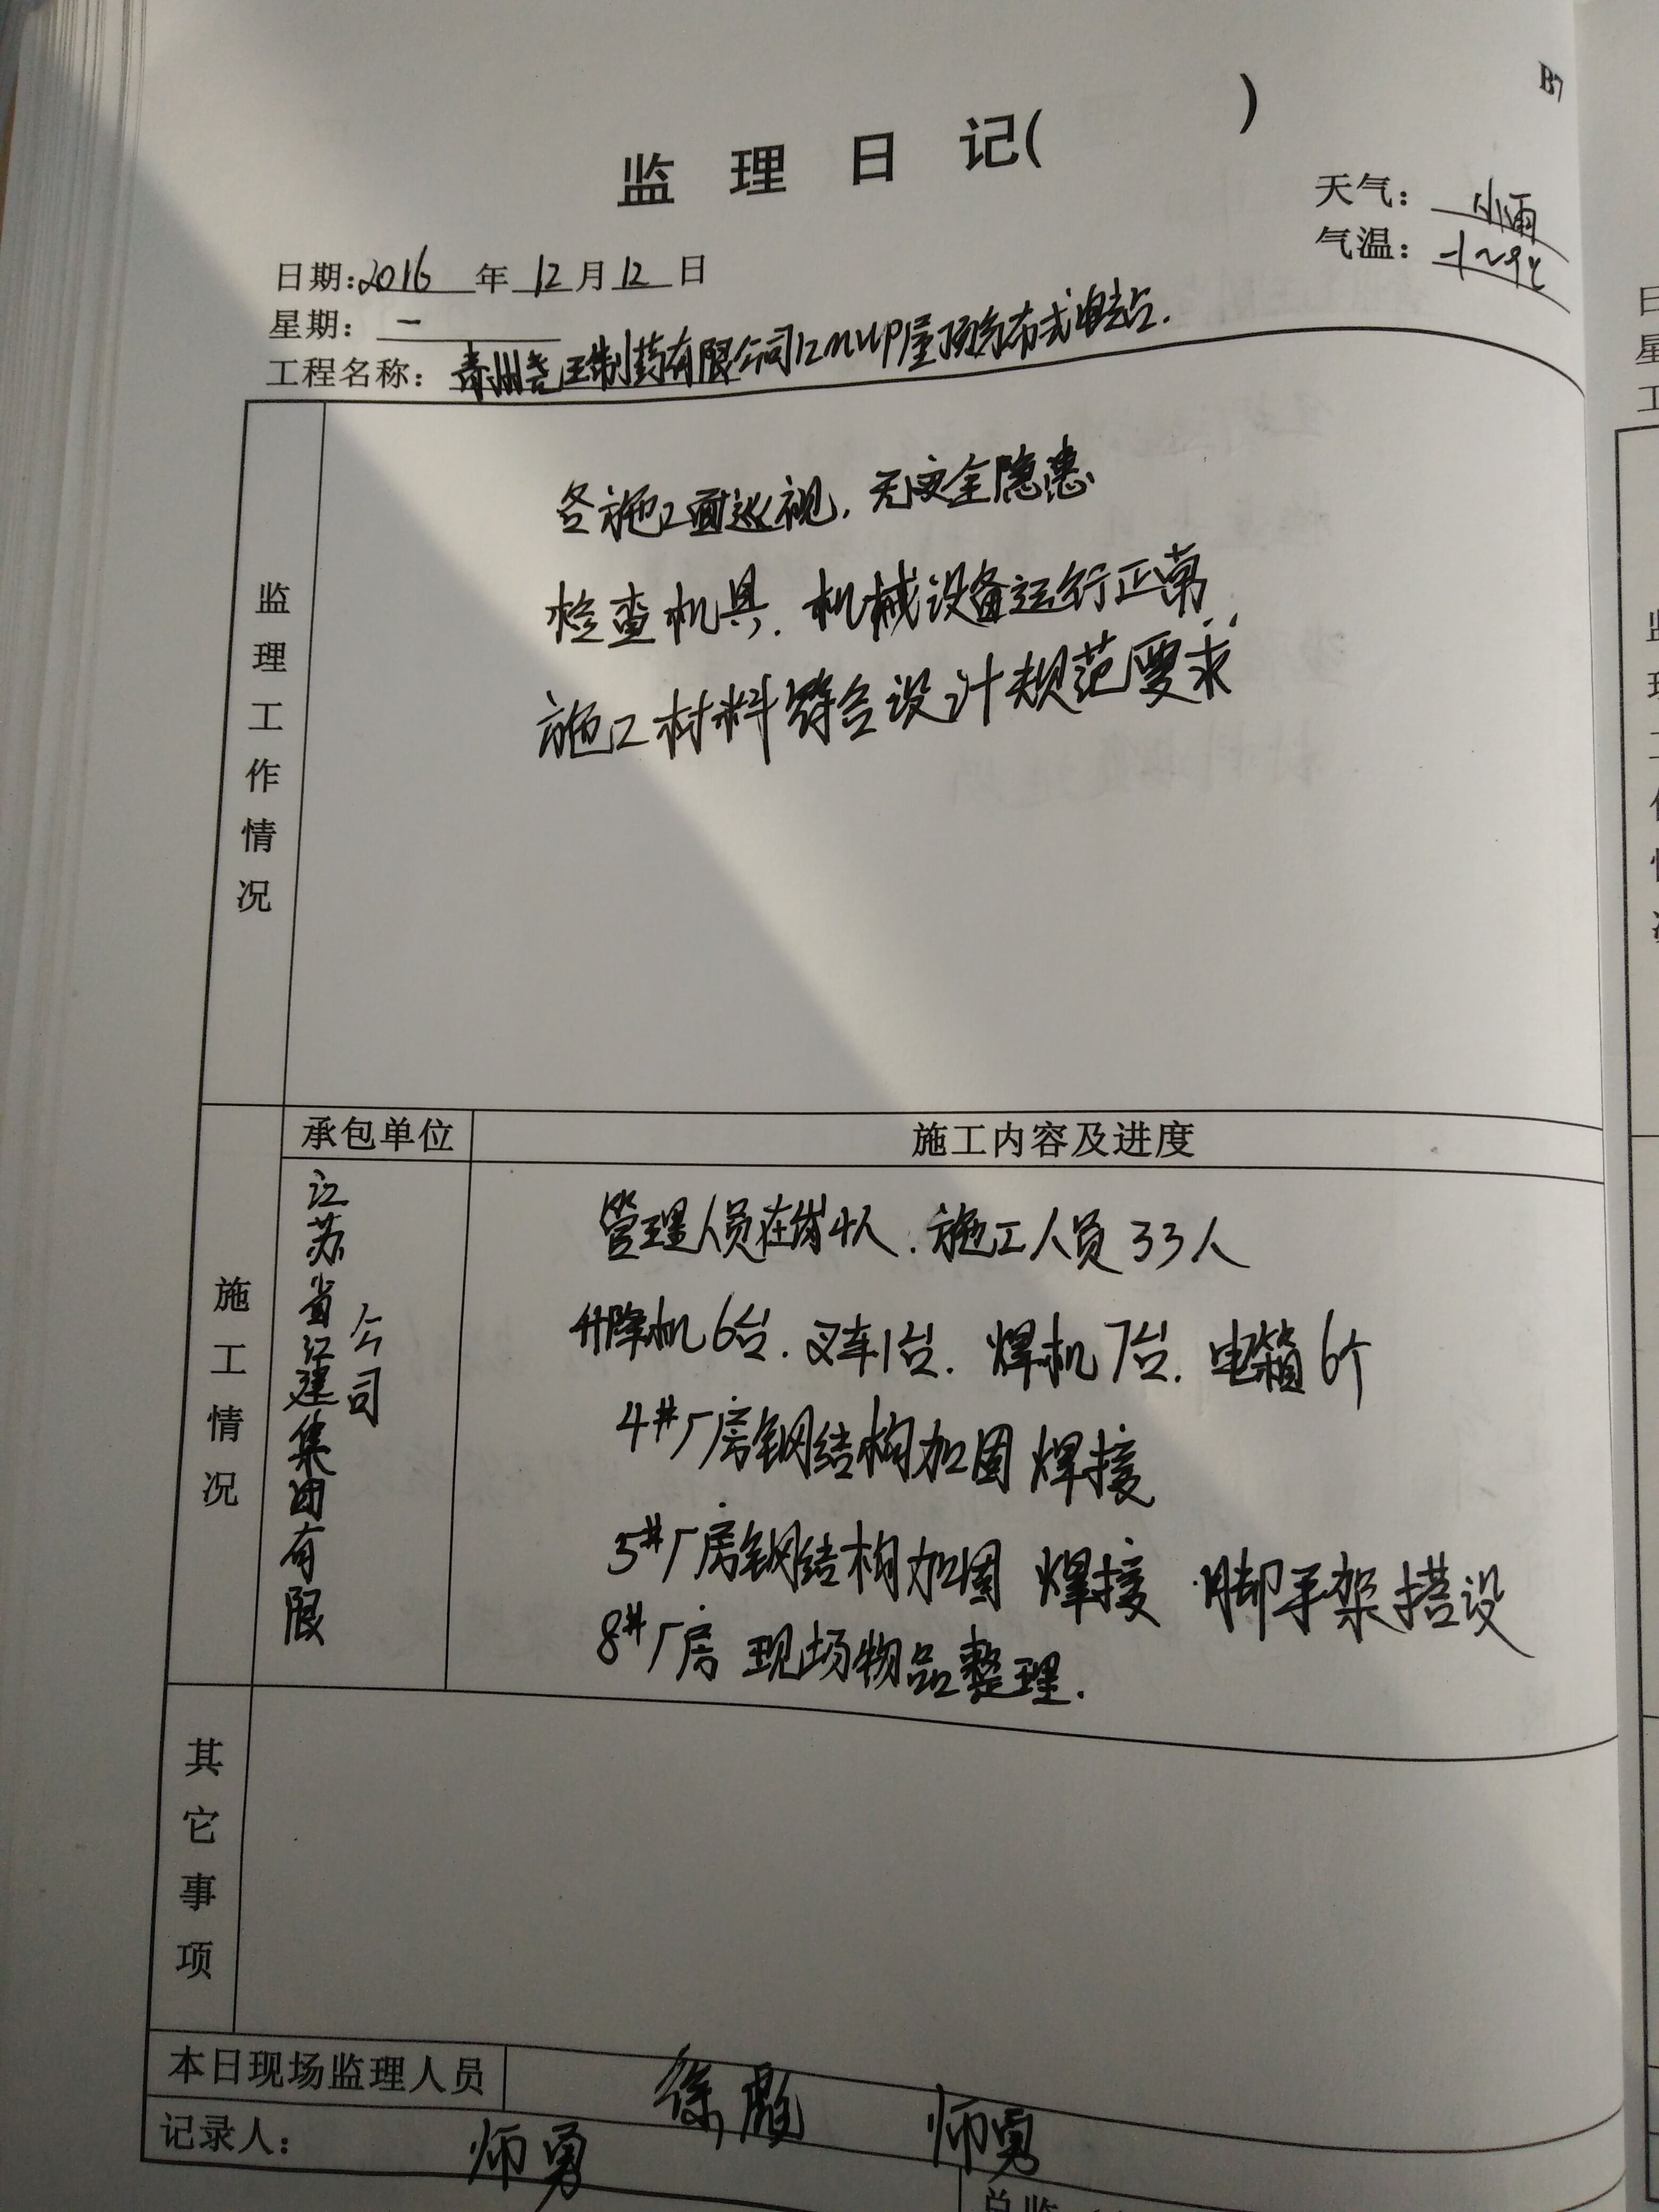 B7
监理日记( )
天气: 小雨
气温: -1~9℃
日期:2016年12月12日
星期: 一
工程名称: 青州尧王制药有限公司12MWP屋顶分布式电站.
监理工作情况
各施工面巡视,无安全隐患
检查机具.机械设备运行正常
施工材料符合设计规范要求
施工情况
承包单位
施工内容及进度
江苏省江建集团有限公司
管理人员在岗4人.施工人员33人
升降机6台.叉车1台.焊机7台.电箱6个
4#厂房钢结构加固 焊接
5#厂房钢结构加固 焊接 脚手架搭设
8#厂房 现场物品整理.
其它事项
本日现场监理人员 徐彪 师勇
记录人: 师勇
总监